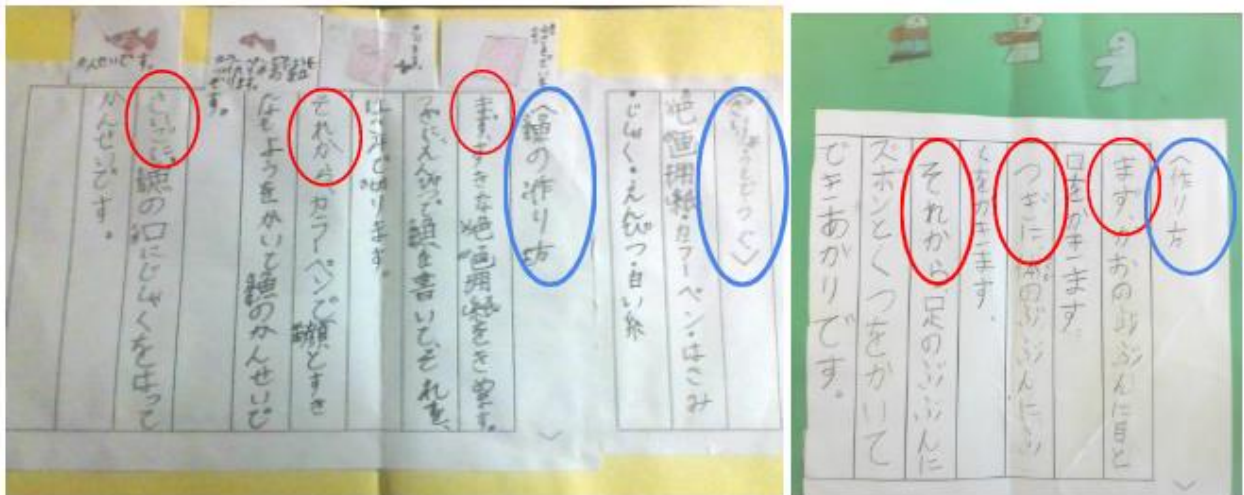 〈ざいりょうとどうぐ〉
・色画用紙・カラーペン・はさみ
・じしゃく・えんぴつ・白い糸
〈魚の作り方〉
まず、すきな色画用紙をきめます。
つぎに、えんぴつで魚を書いて、それを、
はさみで切ります。
それから、カラーペンで、顔とすき
なもようをかいて魚のかんせいで
さいごに、魚の口にじしゃくをはって
かんせいです。
かんせいです。
〈作り方〉
まず、かおのぶぶんに目と
口をかきます。
つぎに、体のぶぶんにふ
くをかきます。
それから、足のぶぶんに
ズボンとくつをかいて
できあがりです。